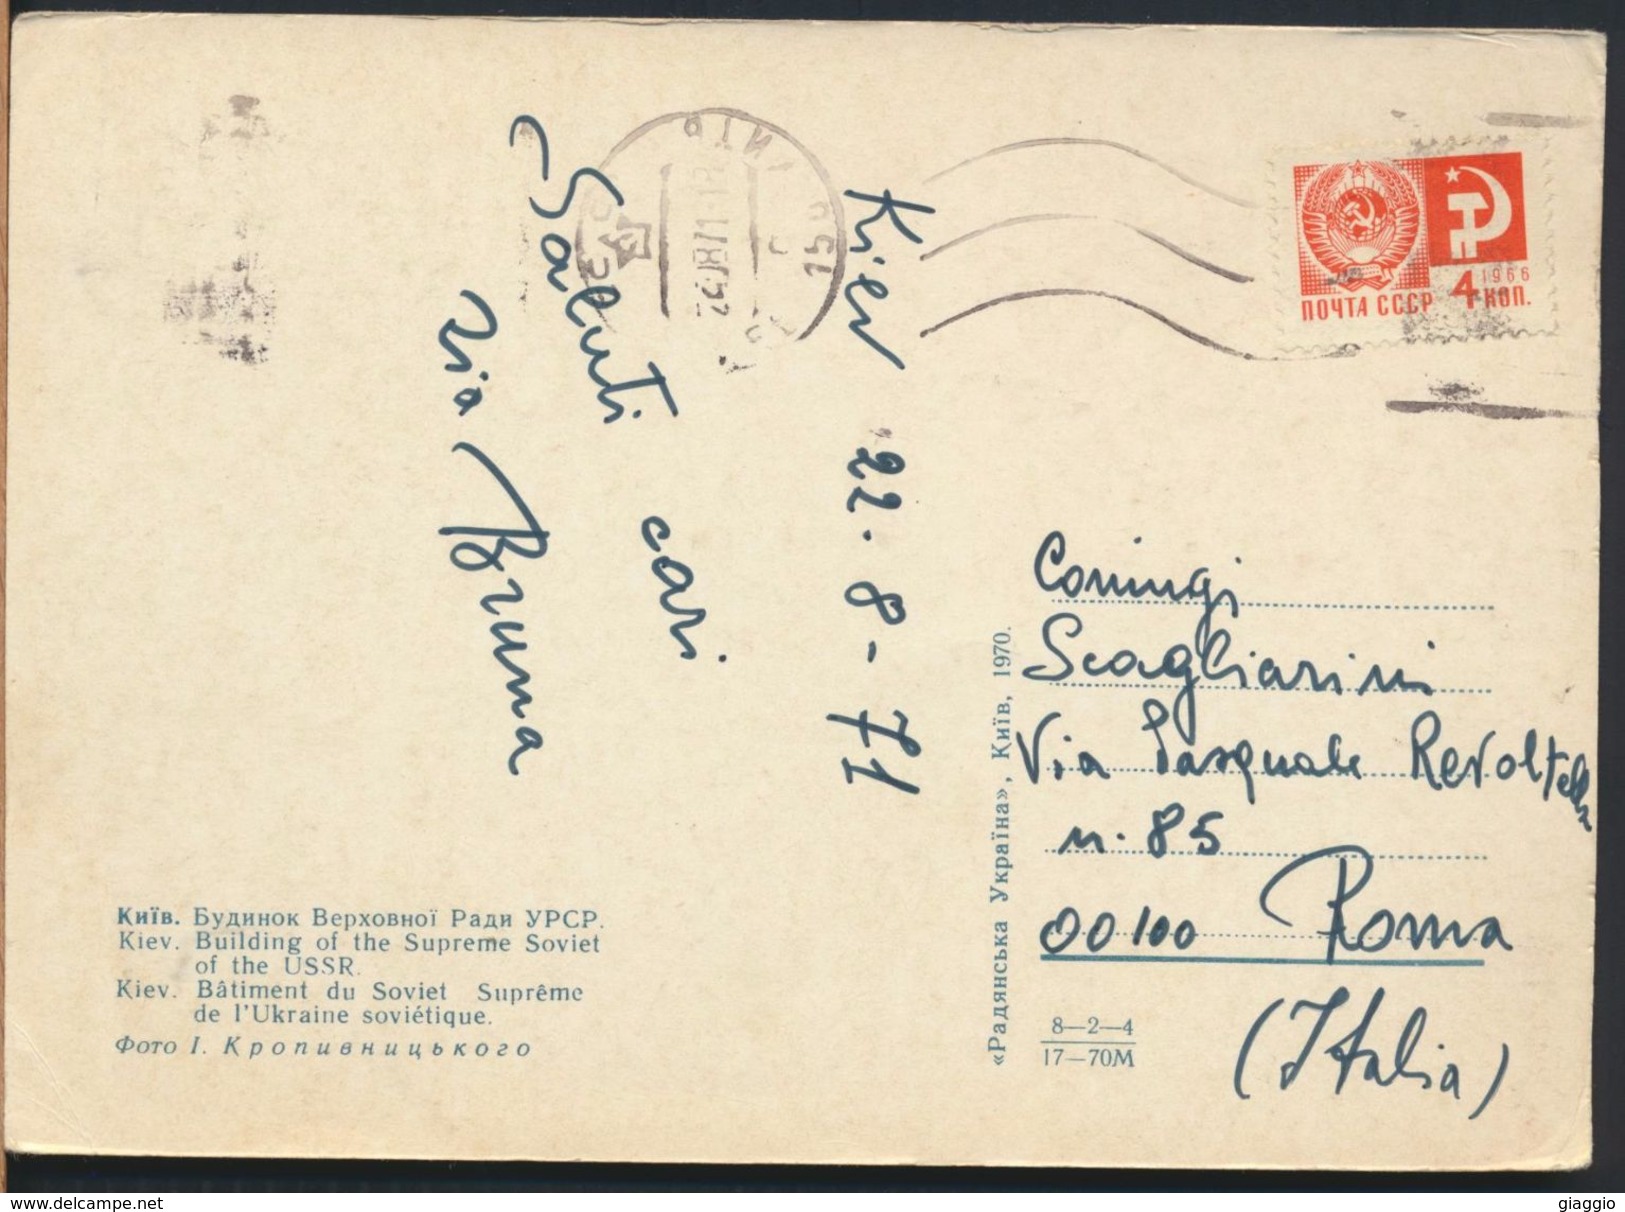 Kiev 22·8-71
Saluti cari
zia Bruna
ПОЧТА СССР
1966
4 КОП.
Coniugi
Scagliarini
Via Pasquale Revoltella
n. 85
00100 Roma
(Italia)
«Радянська Україна», Київ, 1970.
8—2—4
17—70М
Київ. Будинок Верховної Ради УРСР.
Kiev. Building of the Supreme Soviet
of the USSR.
Kiev. Bâtiment du Soviet Suprême
de l'Ukraine soviétique.
Фото І. Кропивницького
giaggio